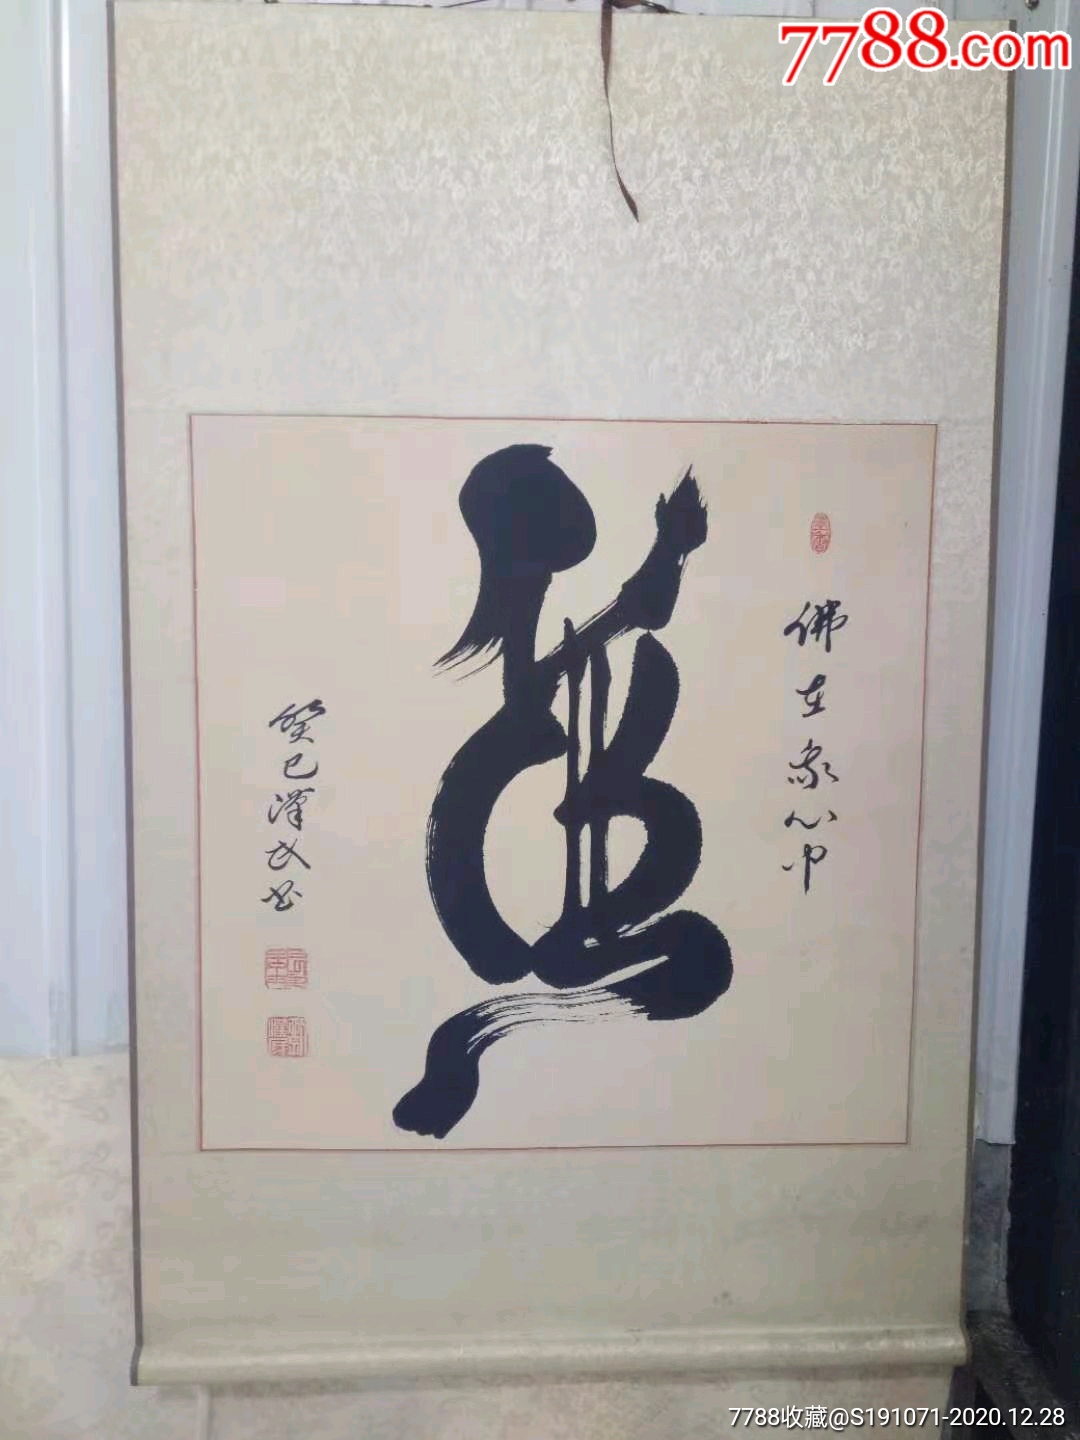 7788.com
佛
佛在我心中
癸巳漢武书
7788收藏@S191071-2020.12.28